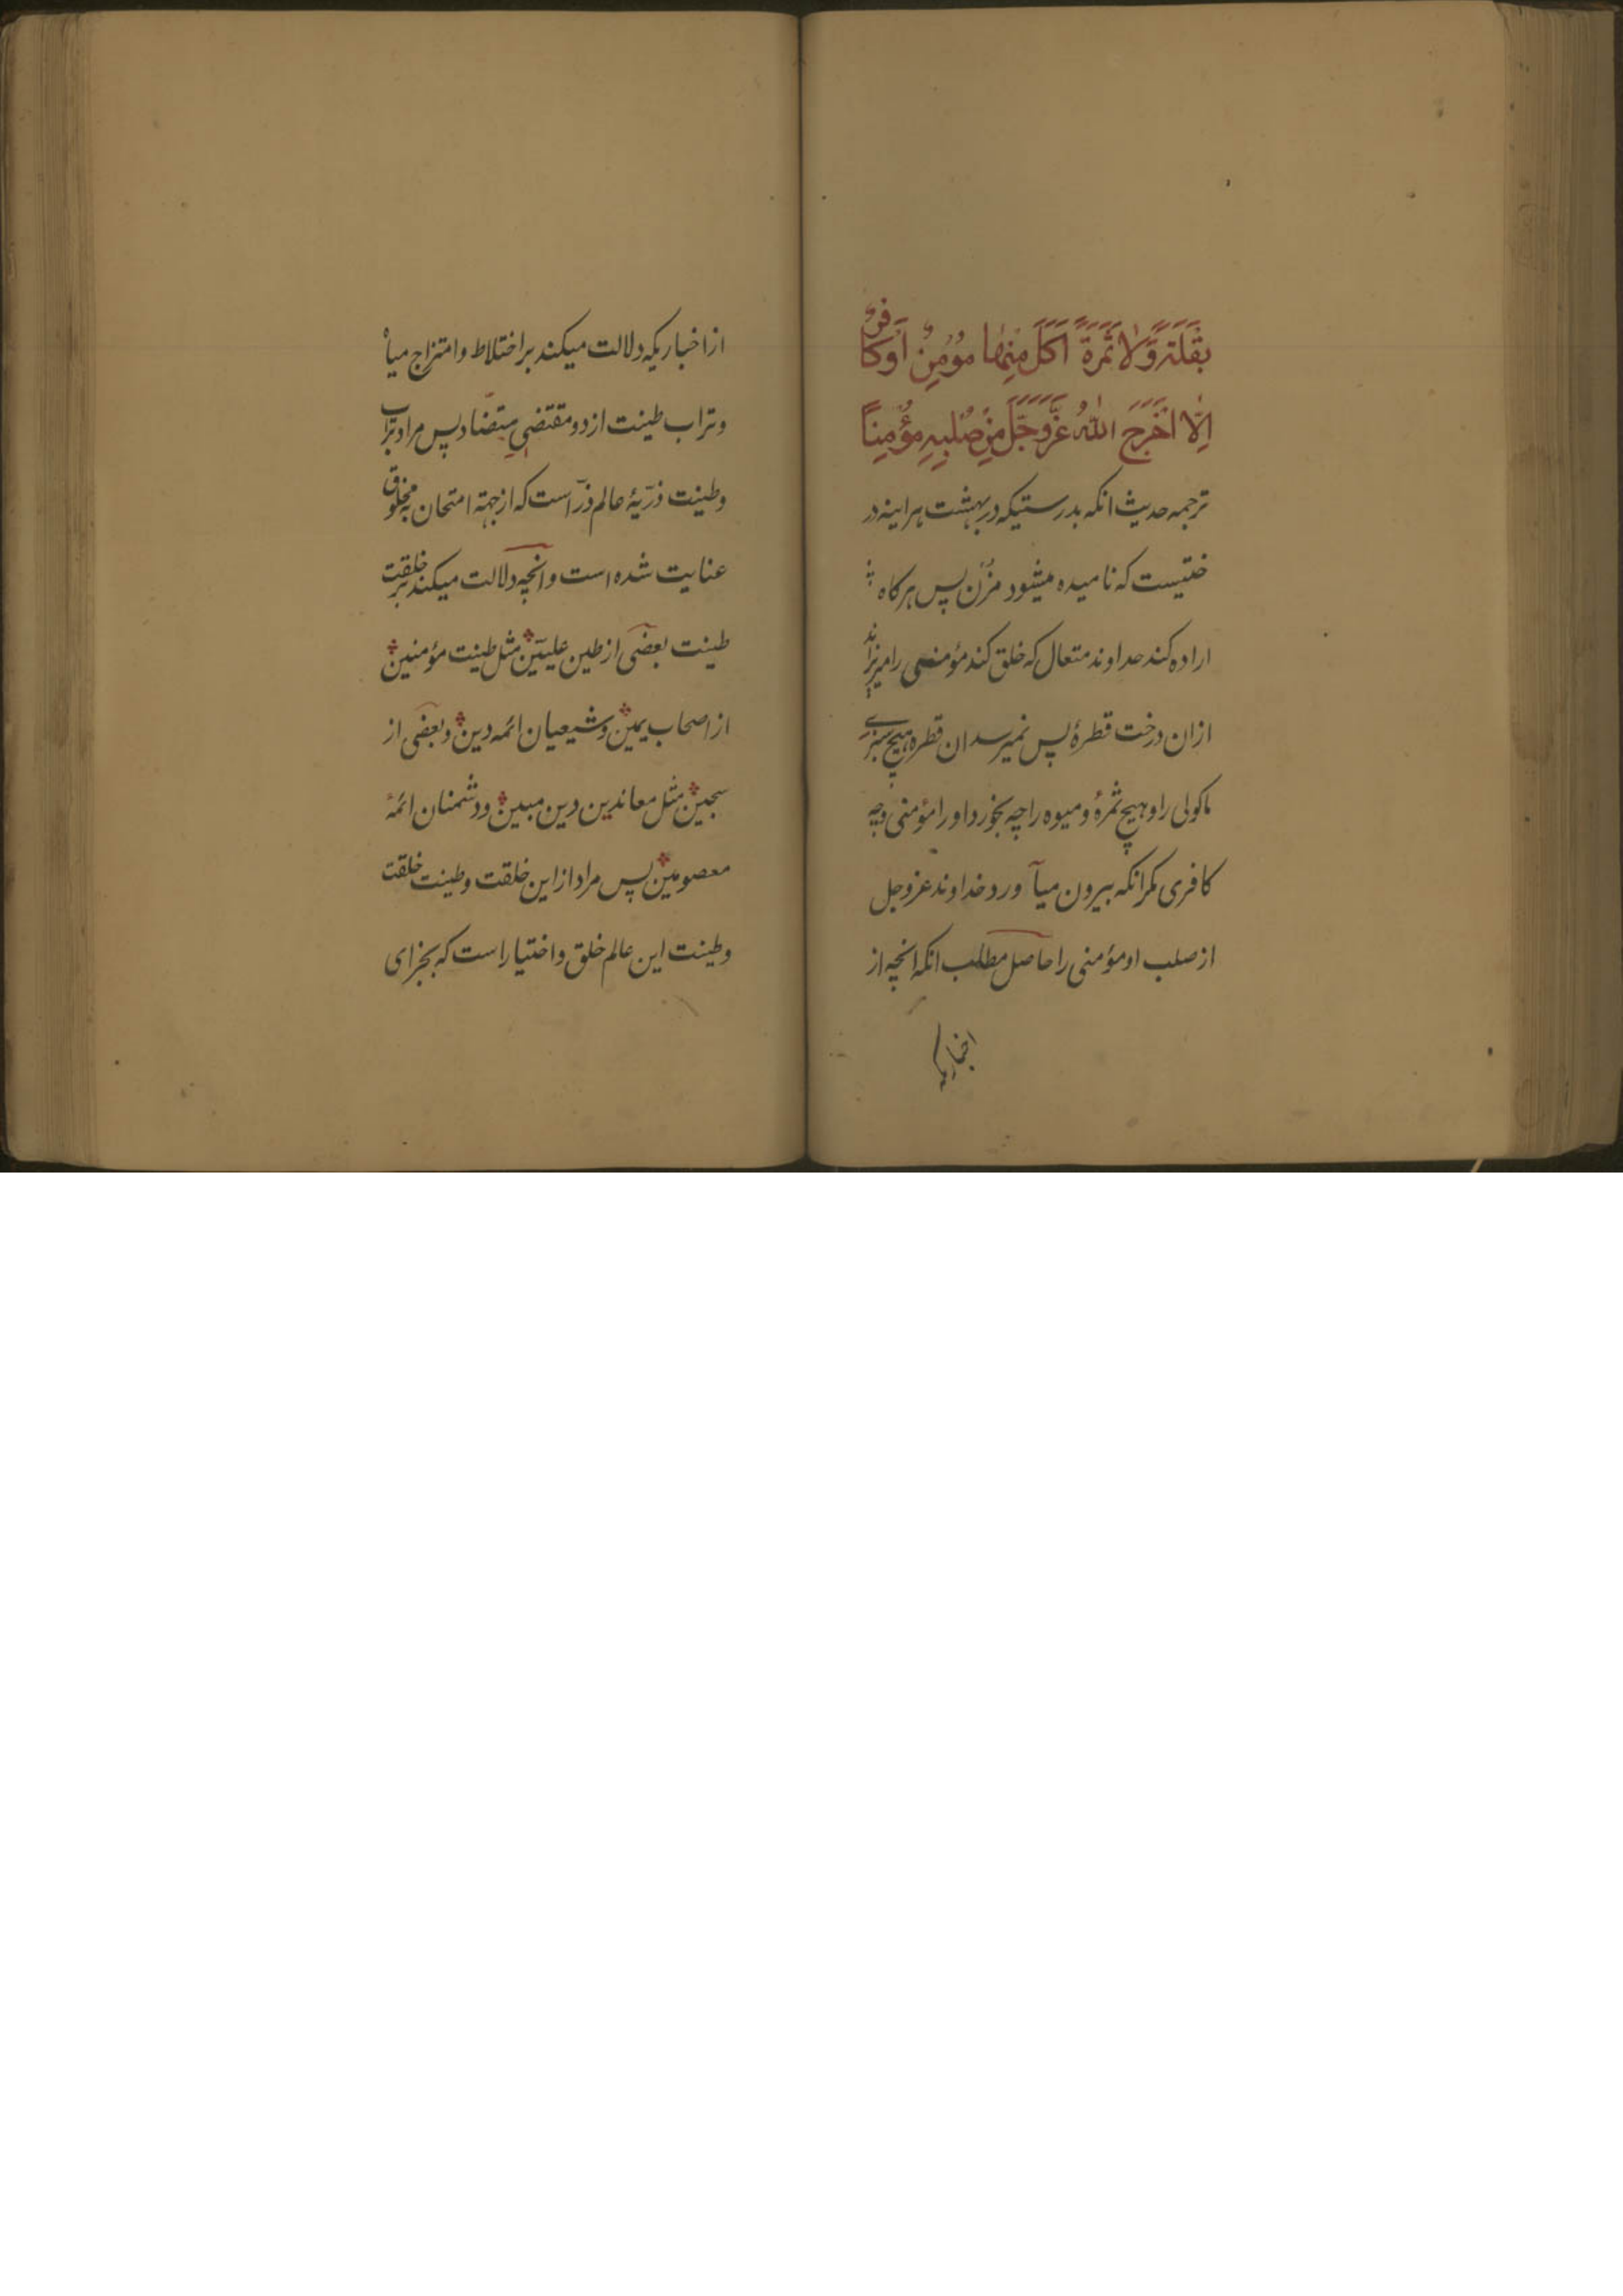 بَقْلَةً وَلَا ثَمَرَةً اَكَلَ مِنْهَا مُؤْمِنٌ اَوْ كَافِرٌ
اِلَّا اَخْرَجَ اللّٰهُ عَزَّوَجَلَّ مِنْ صُلْبِهِ مُؤْمِنًا
ترجمه حدیث انکه بدرستیکه در بهشت هراینه در
ختیست که نامیده میشود مزن پس هرکاه
اراده کند خداوند متعال که خلق کند مؤمنی را میریزاند
ازان درخت قطرهٔ پس نمیرسد ان قطره هیچ سبزی
ماکولی را و هیچ ثمرهٔ و میوه را چه بخورد اورا مؤمنی و چه
کافری مکر انکه بیرون میآورد خداوند عزوجل
از صلب او مؤمنی را حاصل مطلب انکه انچه از
اخباریکه
از اخباریکه دلالت میکند بر اختلاط و امتزاج میاه
و تراب طینت از دو مقتضی متضاد پس مراد تراب
و طینت ذرّیهٔ عالم ذرّ است که از جهة امتحان بمخلوق
عنایت شده است و انچه دلالت میکند بر خلقت
طینت بعضی از طین علیّین مثل طینت مؤمنین
از اصحاب یمین و شیعیان ائمه دین و بعضی از
سجین مثل معاندین دین مبین و دشمنان ائمهٔ
معصومین پس مراد از این خلقت و طینت خلقت
و طینت این عالم خلق و اختیار است که بجزای